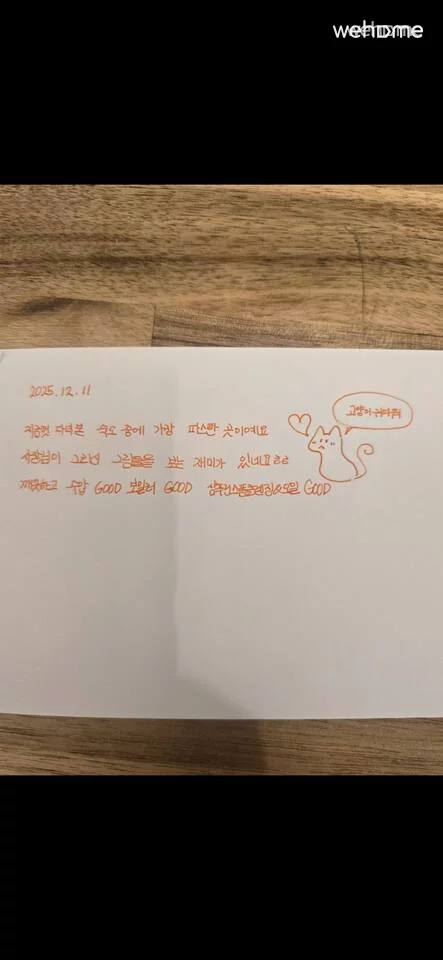 wehome
2025.12.11
지금껏 다녀본 숙소 중에 가장 따스한 곳이에요
고양이 귀여워
사장님이 그리신 그림들을 보는 재미가 있네요ㅎㅎ
깨끗하고 수압 GOOD 보일러 GOOD 샴푸린스폼클렌징&오일 GOOD